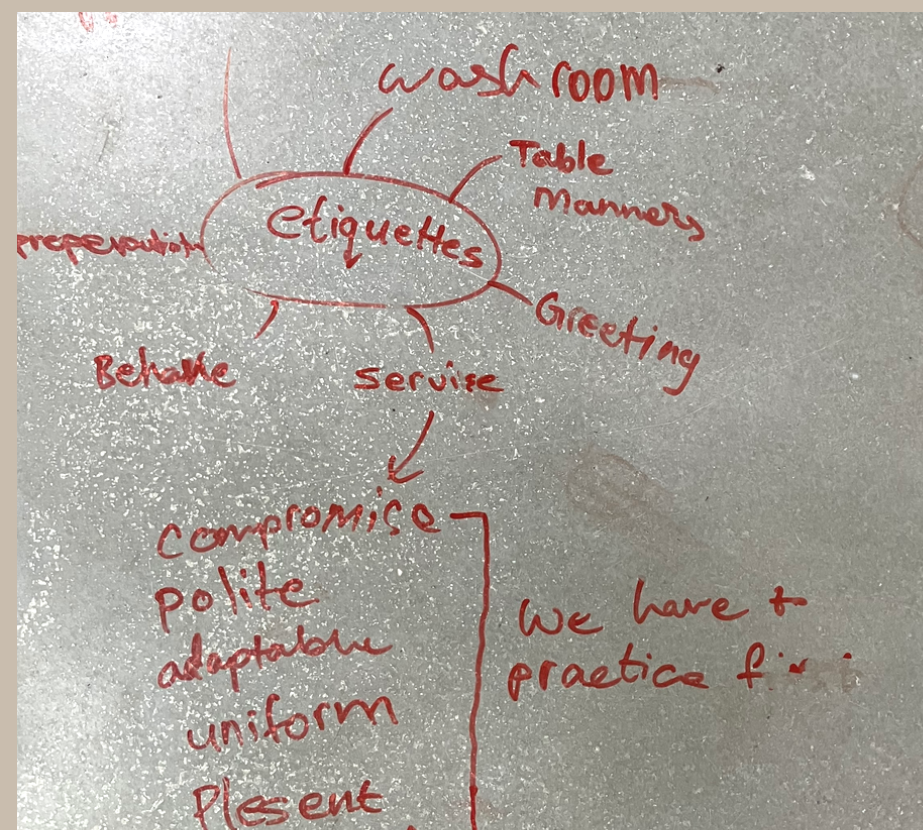 wash room
Table
Manners
etiquettes
preperation
Greeting
Behave
Service
compromise
polite
adaptable
uniform
Plesent
We have to
practice first